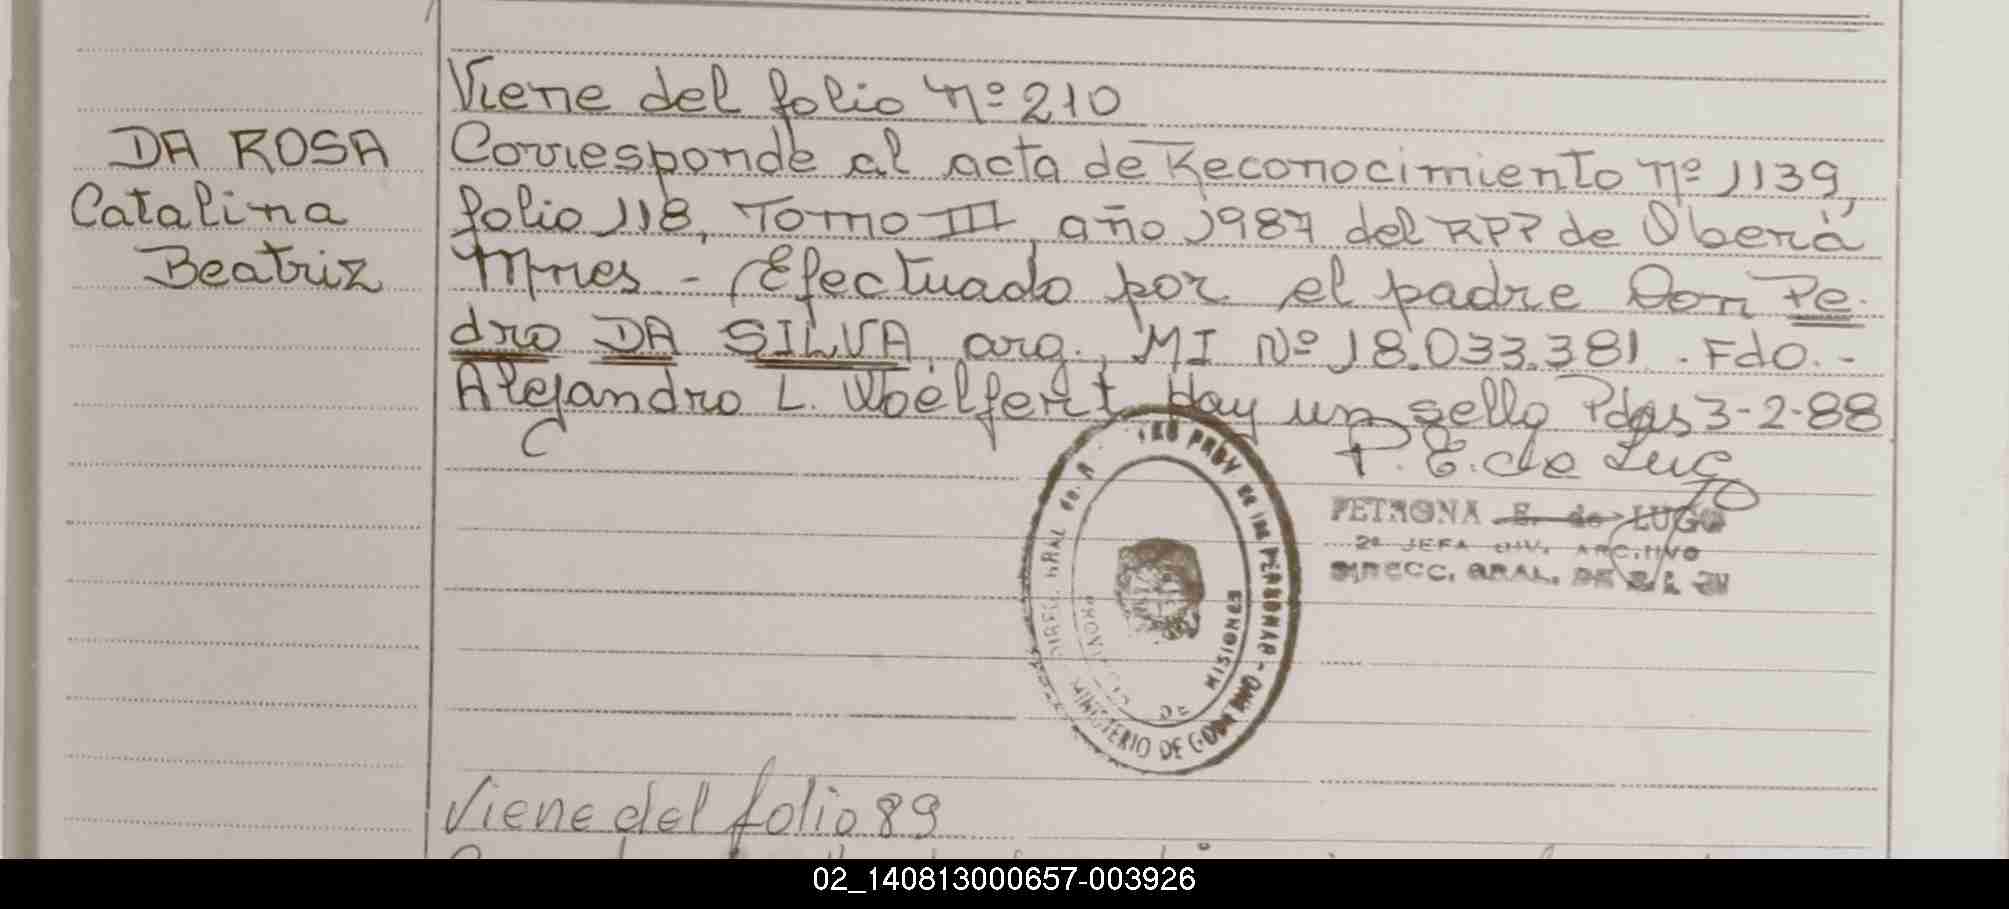 Viene del folio nº 210
DA ROSA
Catalina
Beatriz
Corresponde al acta de Reconocimiento nº 1139,
folio 118, Tomo III, año 1987 del RPP de Oberá
Mnes - Efectuado por el padre Don Pe-
dro DA SILVA, arg., MI Nº 18.033.381. Fdo.-
Alejandro L. Woelfert Hay un sello Pdas 3-2-88
C
P. E. de Lugo
PETRONA E. de LUGO
2ª JEFA DIV. ARCHIVO
DIRECC. GRAL. DE
PROV. DE LAS PERSONAS
MINISTERIO DE
DE MISIONES
Viene del folio 89
02_140813000657-003926